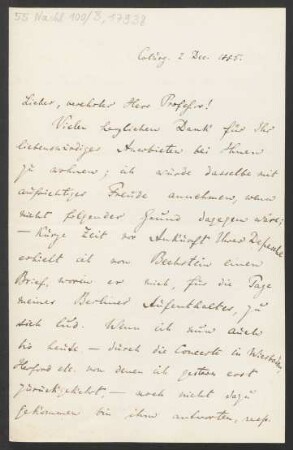 55 Nachl 100/B, 17938
Coburg. 2 Dec. 1885.
Lieber, verehrter Herr Professor!
Vielen herzlichen Dank für Ihr
liebenswürdiges Anerbieten bei Ihnen
zu wohnen; ich würde dasselbe mit
aufrichtiger Freude annehmen, wenn
nicht folgender Grund dagegen wäre:
– kurze Zeit vor Ankunft Ihrer Depesche
erhielt ich von Bechstein einen
Brief, worin er mich, für die Tage
meines Berliner Aufenthaltes, zu
sich lud. Wenn ich nun auch
bis heute – durch die Concerte in Wiesbaden,
Herford etc. von denen ich gestern erst
zurückgekehrt, – noch nicht dazu
gekommen bin ihm antworten, resp.